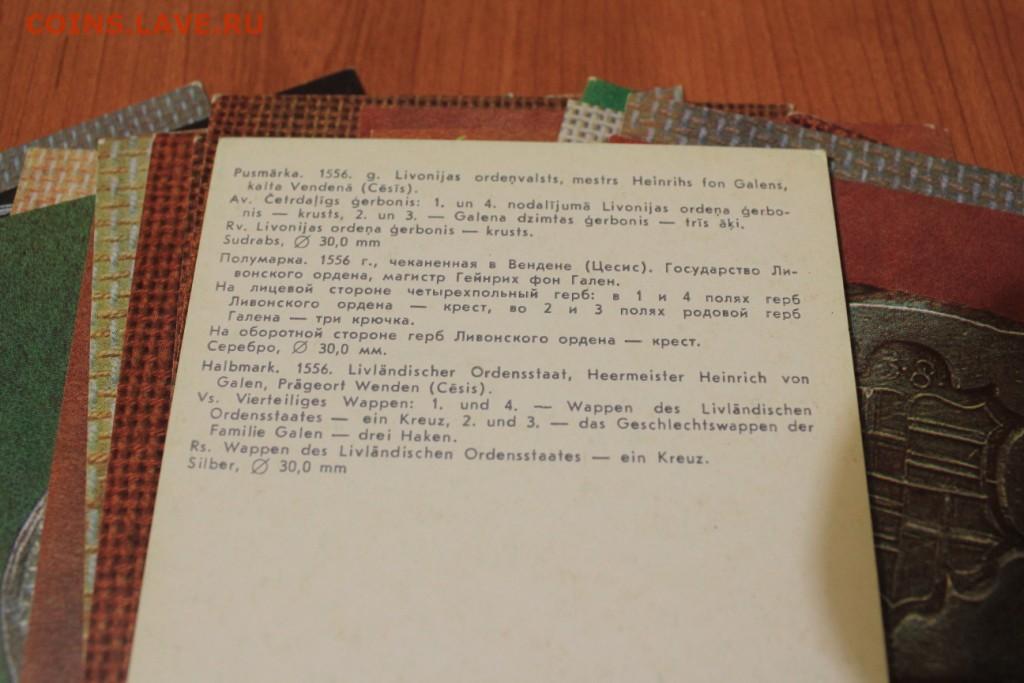 COINS.LAVE.RU
Pusmārka. 1556. g. Livonijas ordeņvalsts, mestrs Heinrihs fon Galens,
kalta Vendenā (Cēsīs).
Av. Četrdaļīgs ģerbonis: 1. un 4. nodalījumā Livonijas ordeņa ģerbo-
nis — krusts, 2. un 3. — Galena dzimtas ģerbonis — trīs āķi.
Rv. Livonijas ordeņa ģerbonis — krusts.
Sudrabs, ∅ 30,0 mm
Полумарка. 1556 г., чеканенная в Вендене (Цесис). Государство Ли-
вонского ордена, магистр Гейнрих фон Гален.
На лицевой стороне четырехпольный герб: в 1 и 4 полях герб
Ливонского ордена — крест, во 2 и 3 полях родовой герб
Галена — три крючка.
На оборотной стороне герб Ливонского ордена — крест.
Серебро, ∅ 30,0 мм.
Halbmark. 1556. Livländischer Ordensstaat, Heermeister Heinrich von
Galen, Prägeort Wenden (Cēsis).
Vs. Vierteiliges Wappen: 1. und 4. — Wappen des Livländischen
Ordensstaates — ein Kreuz, 2. und 3. — das Geschlechtswappen der
Familie Galen — drei Haken.
Rs. Wappen des Livländischen Ordensstaates — ein Kreuz.
Silber, ∅ 30,0 mm